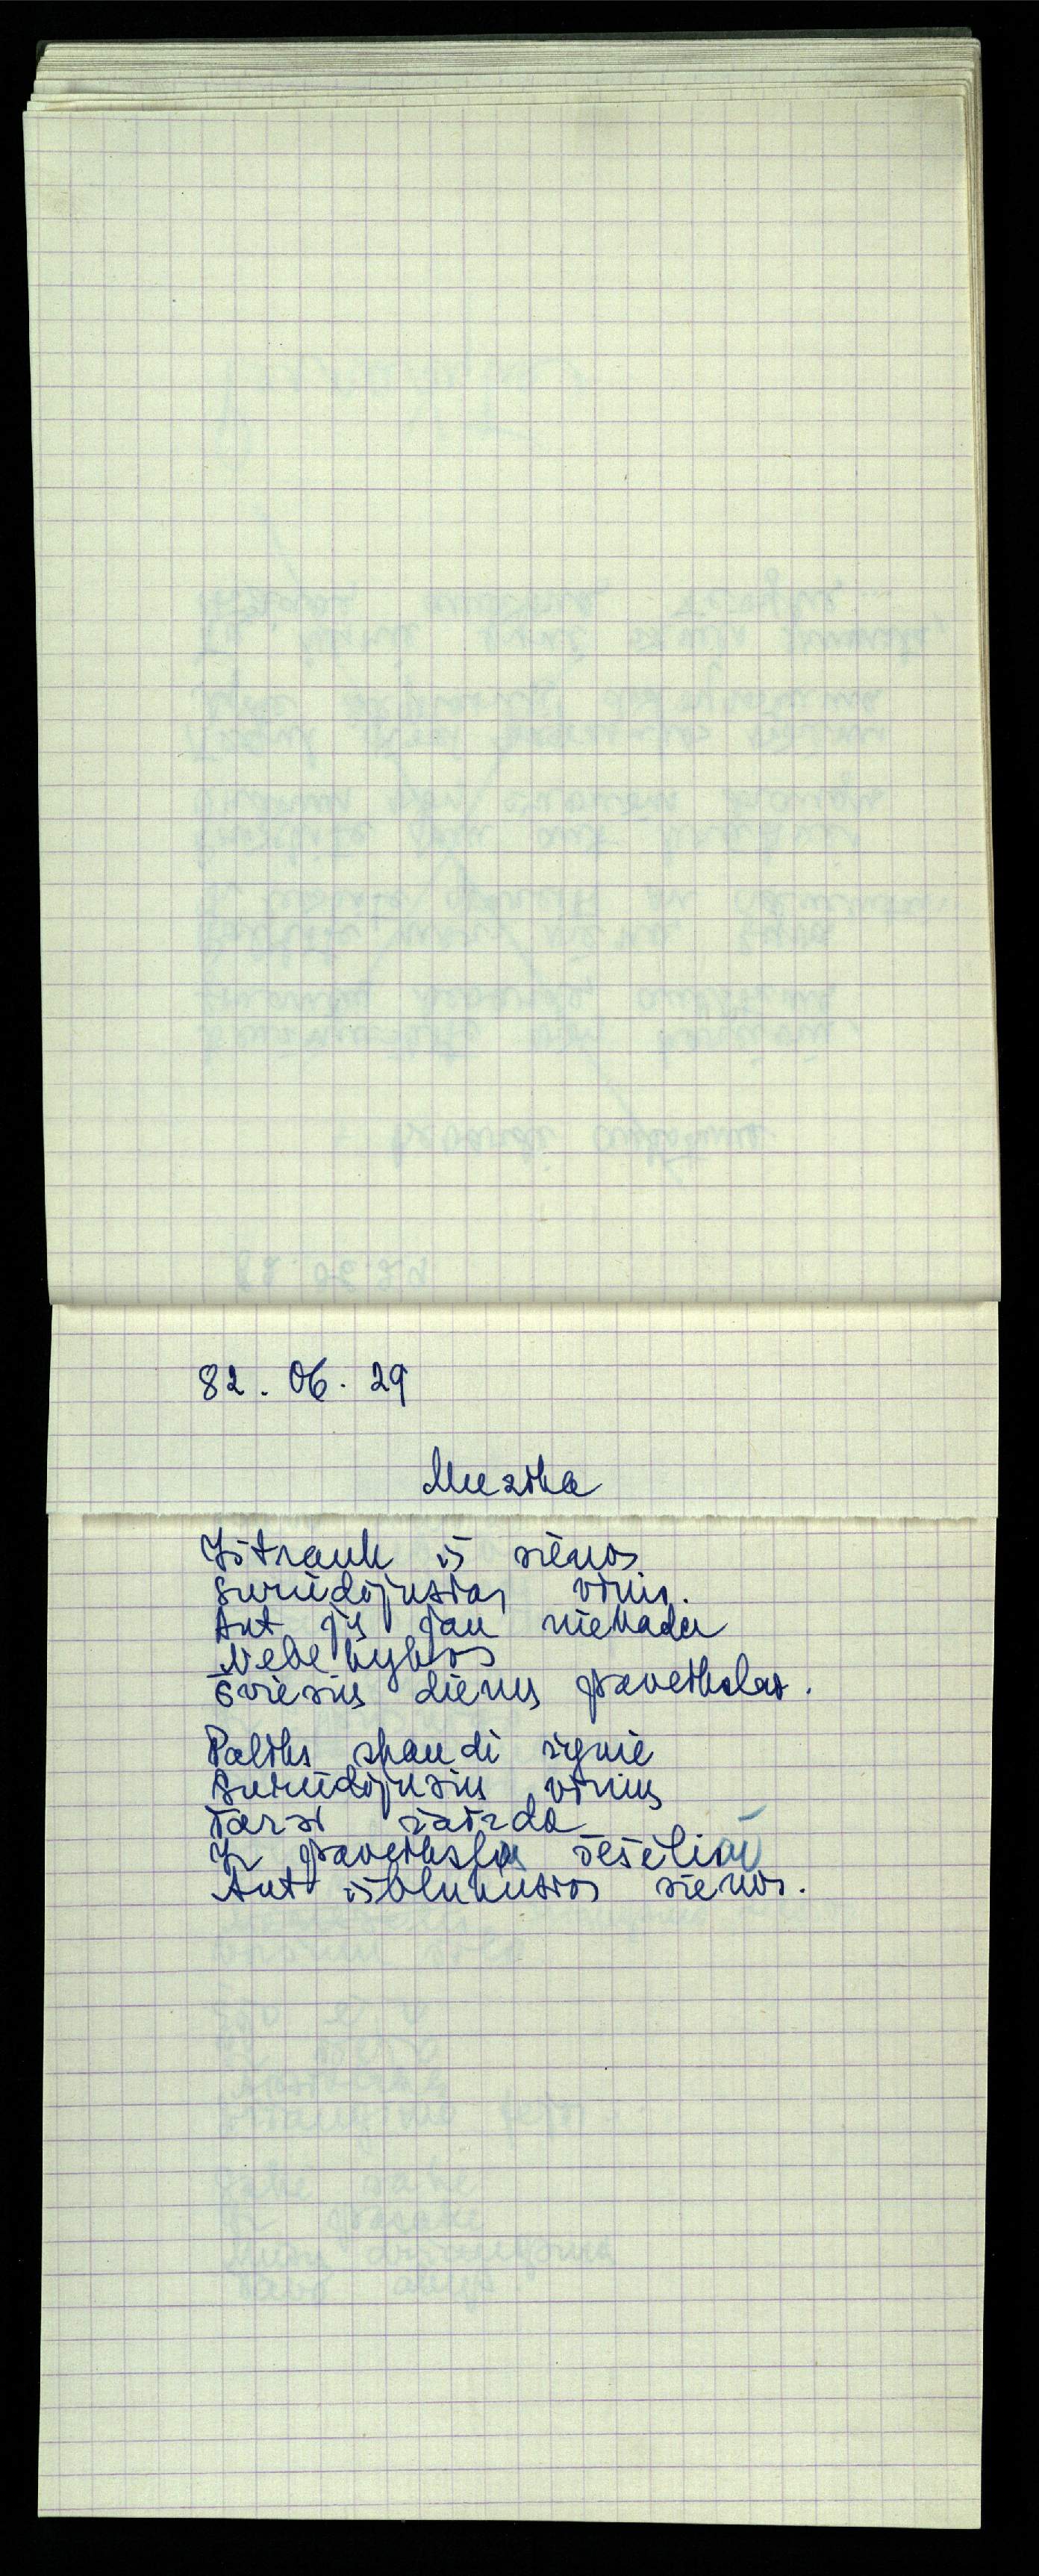 82. 06. 29
Muzika
Ištrauk iš sienos
surūdijusias vinis.
Ant jų jau niekada
Nebekybos
šviesių dienų paveikslas.
Paliks skaudi žymė
Surūdijusių vinių
Tarsi žaizda
Ir paveikslų šešėliai
Ant išblukusios sienos.